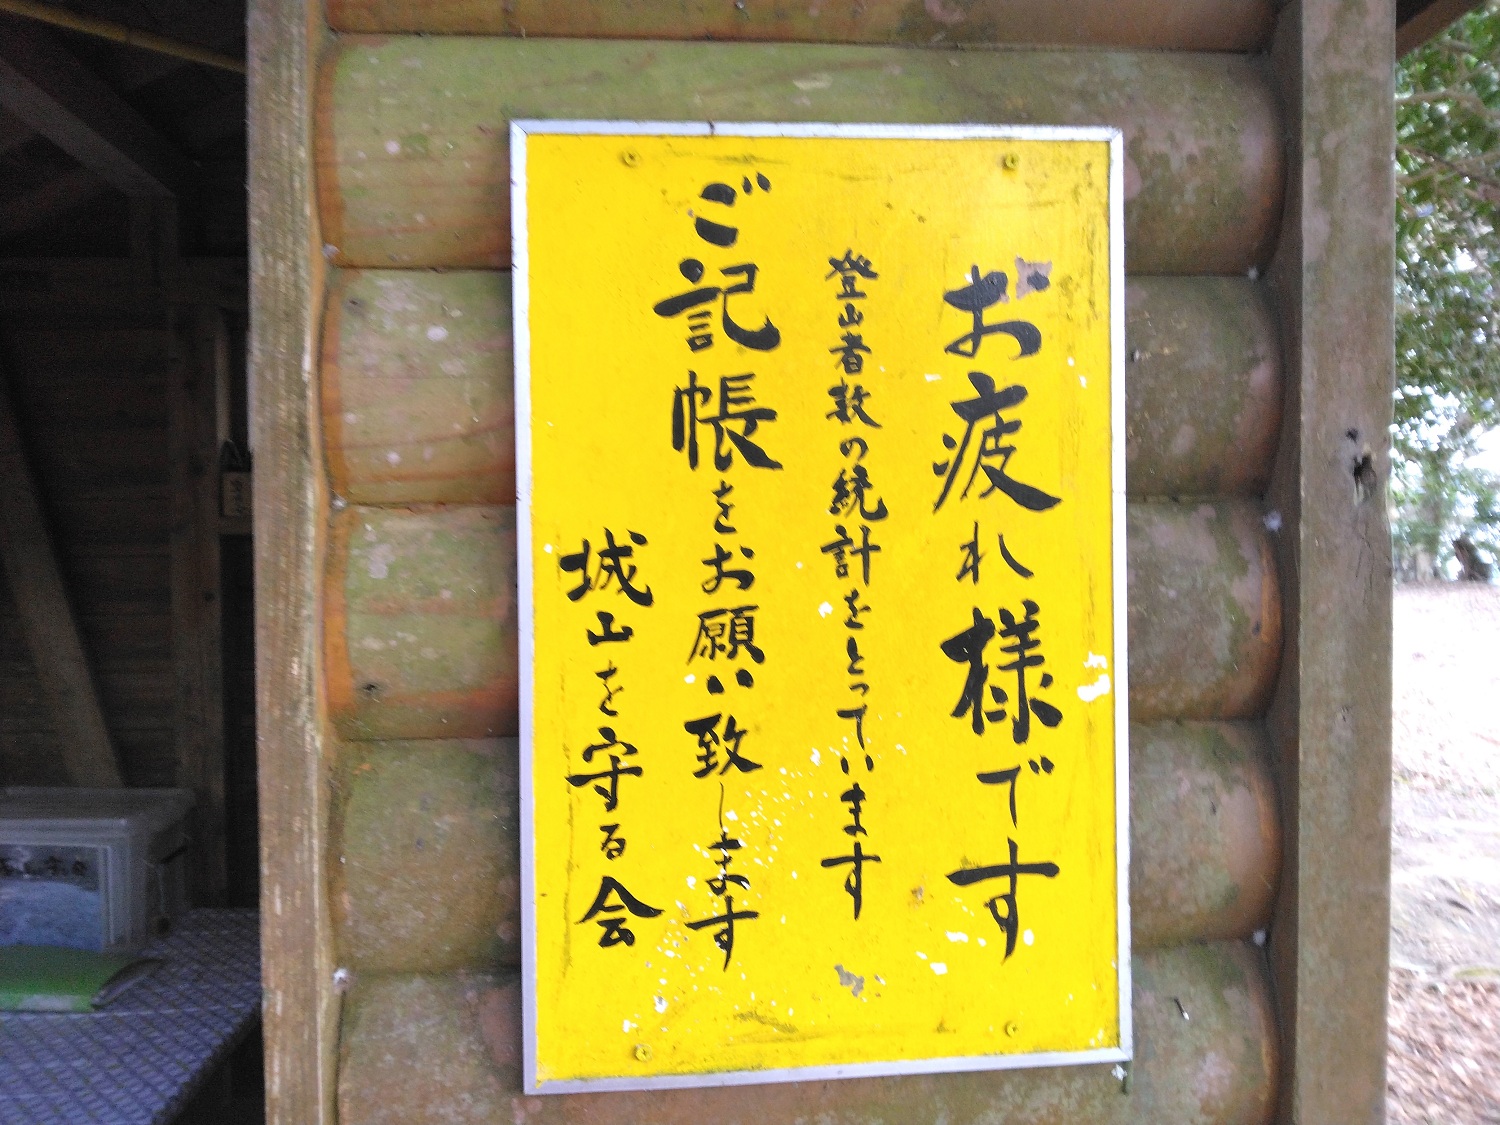 お疲れ様です
登山者数の統計をとっています
ご記帳をお願い致します
城山を守る会